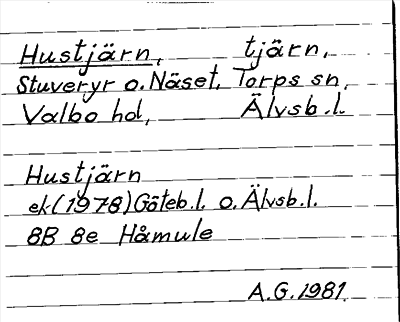 Hustjärn, tjärn,
Stuveryr o. Näset, Torps sn,
Valbo hd, Älvsb.l.
Hustjärn
ek (1978) Göteb.l. o. Älvsb.l.
8B 8e Håmule
A.G. 1981.